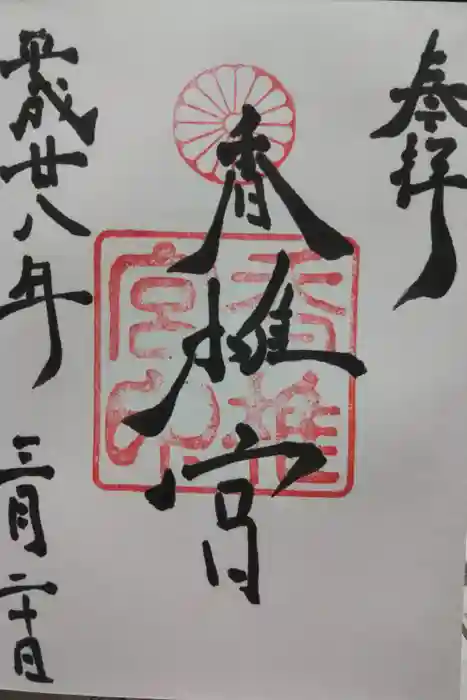 奉拝
香椎宮
香椎
宮印
平成廿八年 三月二十日